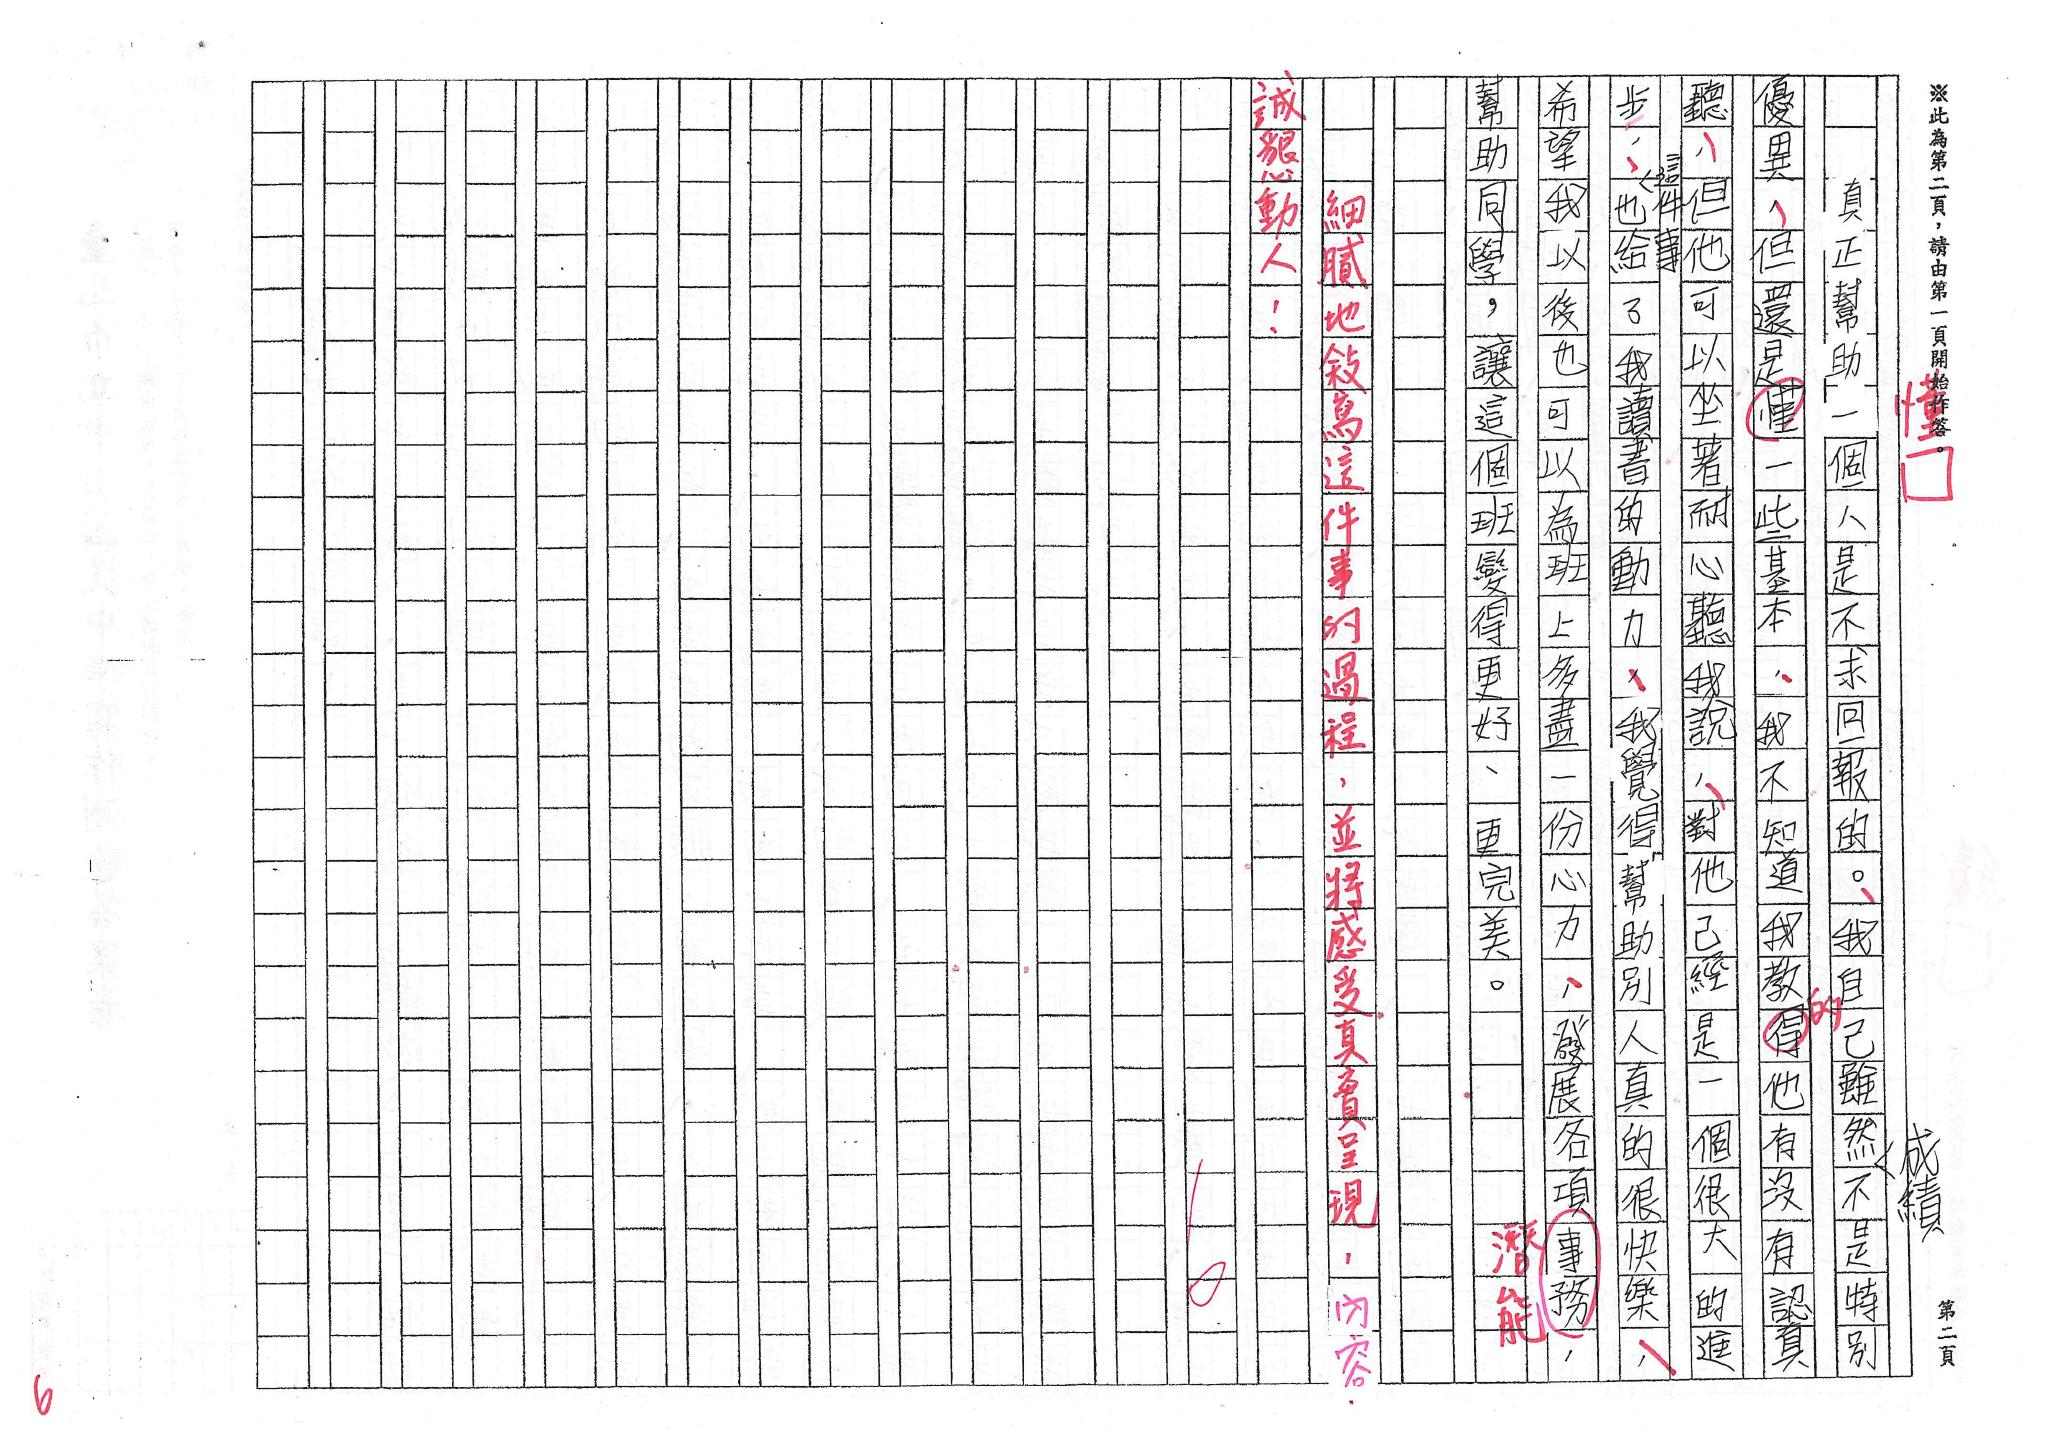 ※此為第二頁，請由第一頁開始作答。
第二頁
懂
成績
真正幫助一個人是不求回報的。我自己雖然不是特別
優異，但還是懂一些基本，我不知道我教得他有沒有認真
的
聽，但他可以坐著耐心聽我說，對他已經是一個很大的進
這件事
步，也給了我讀書的動力，我覺得幫助別人真的很快樂，
希望我以後也可以為班上多盡一份心力，發展各項事務，
潛能
幫助同學，讓這個班變得更好、更完美。
細膩地敘寫這件事的過程，並將感受真實呈現，內容
誠懇動人！
6